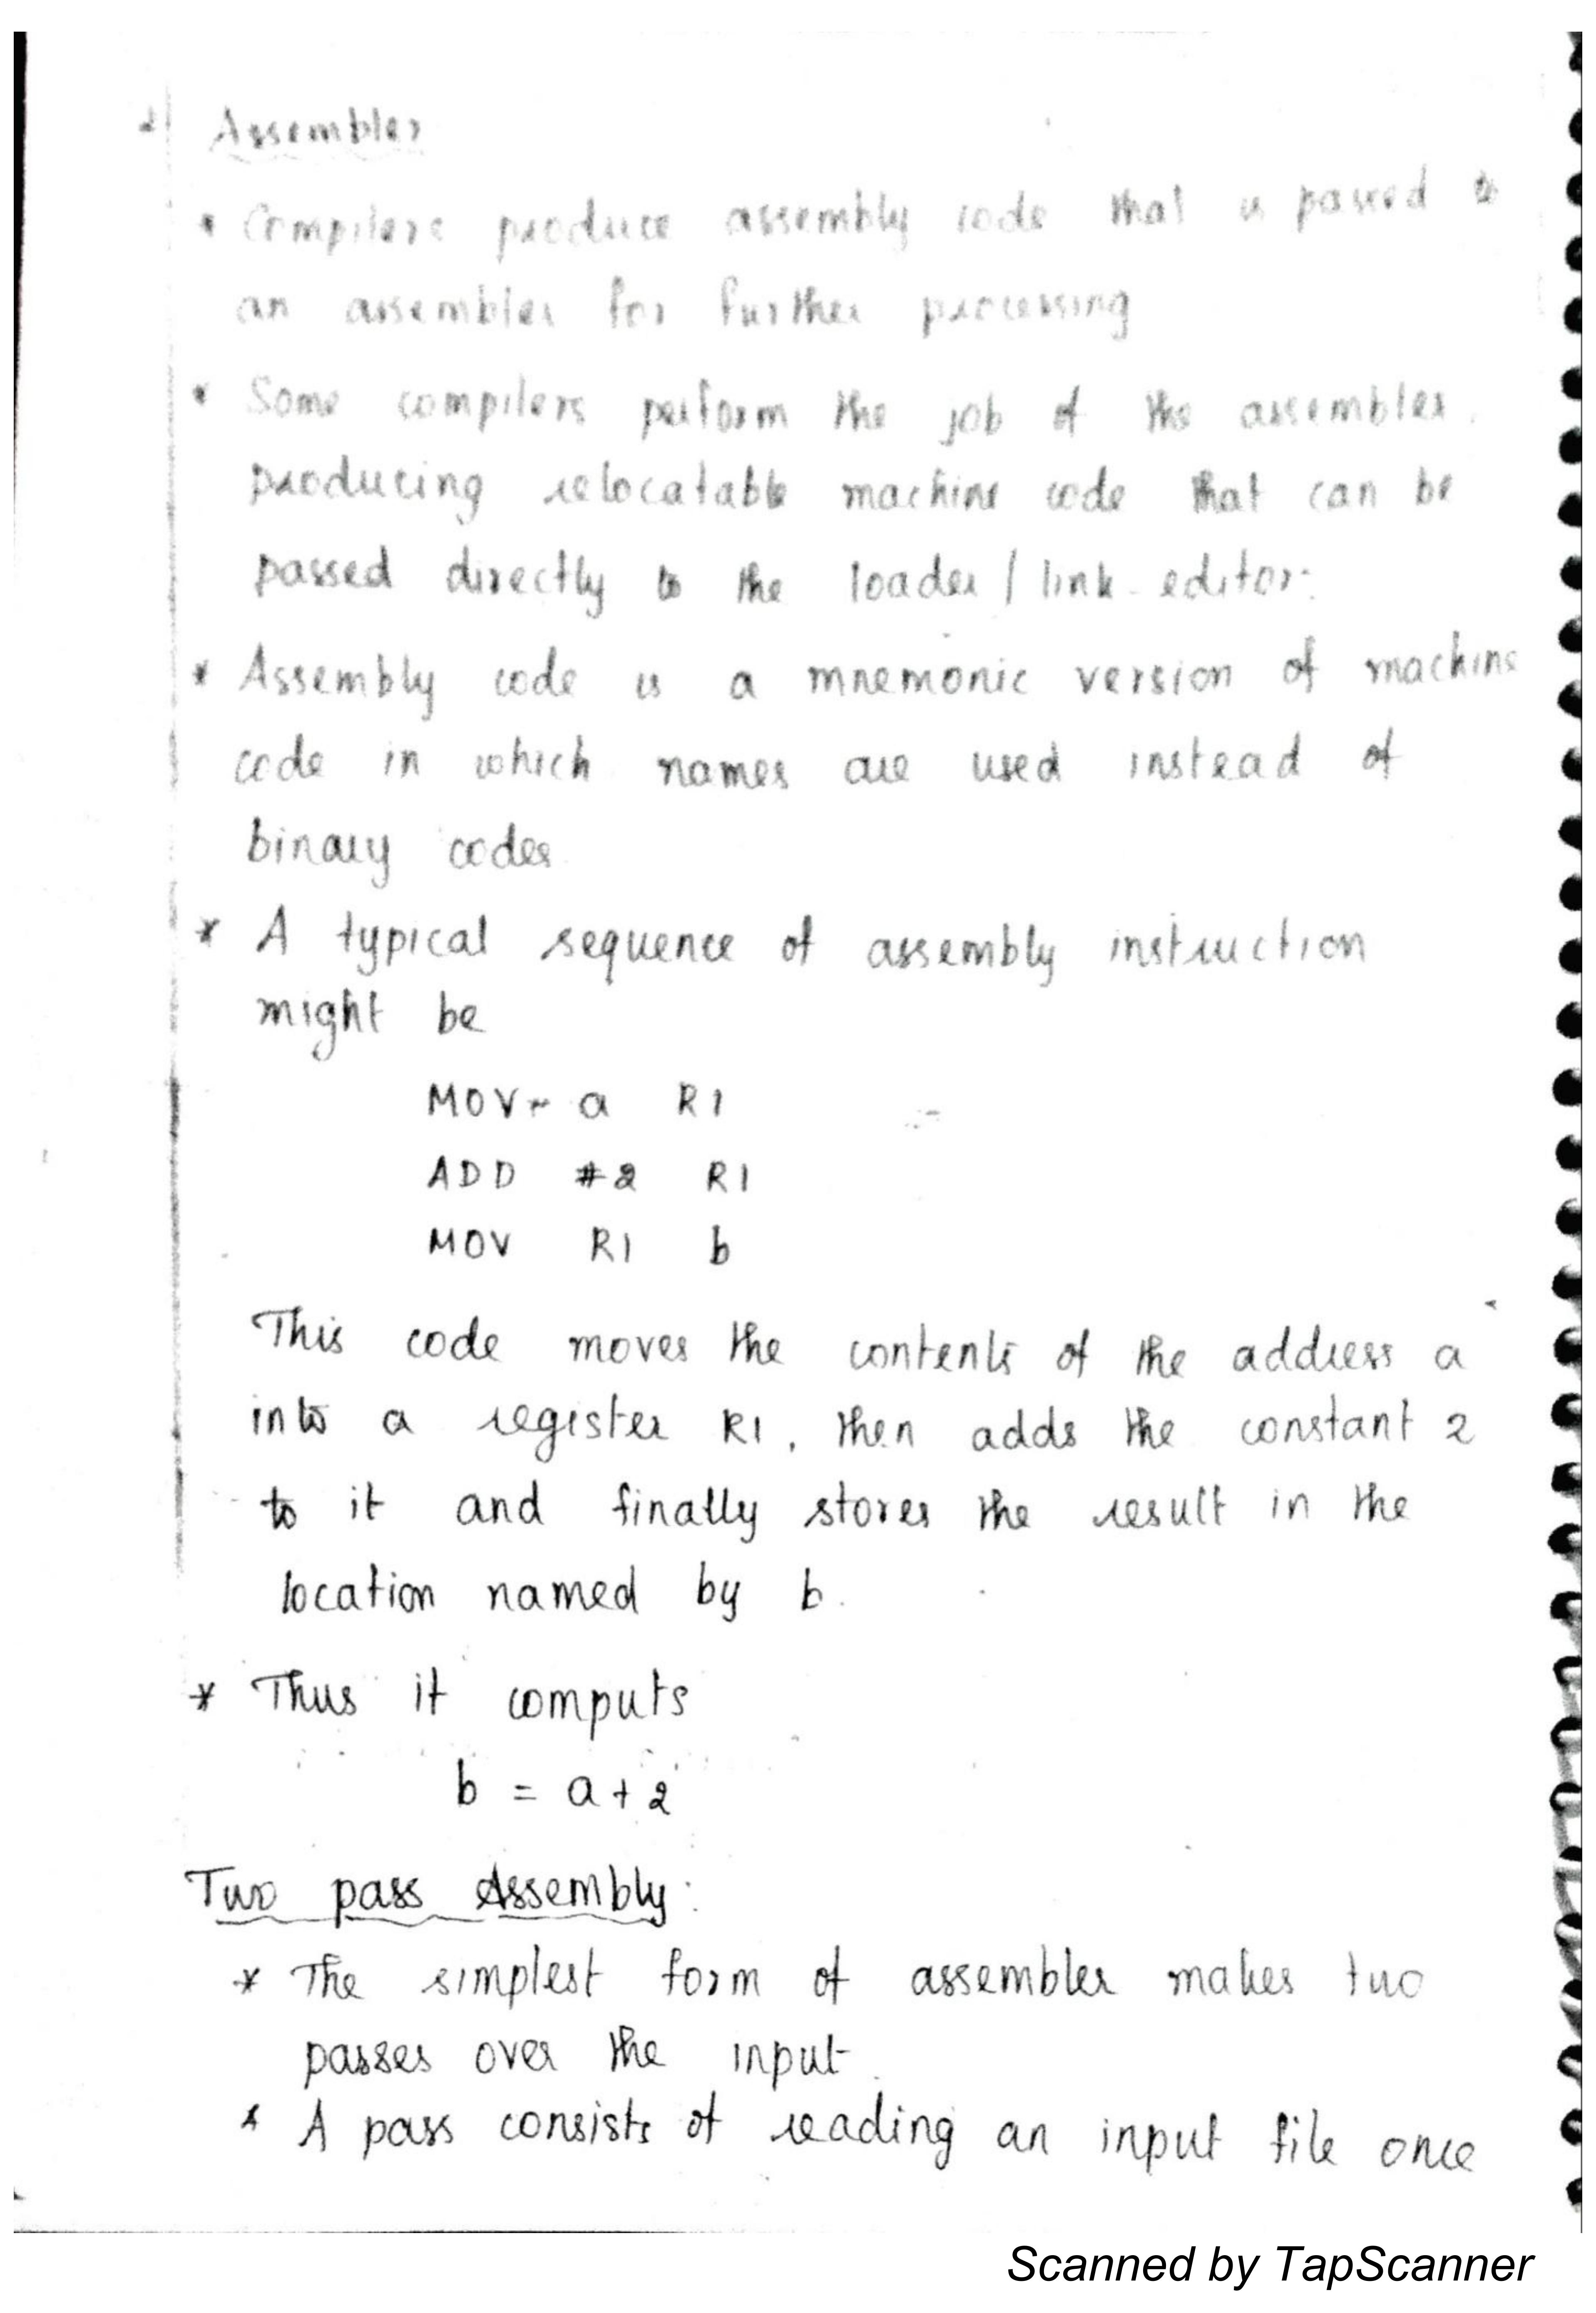 2) Assembler
* Compilers produce assembly code that is passed to
an assembler for further processing
* Some compilers perform the job of the assembler.
producing relocatable machine code that can be
passed directly to the loader / link-editor.
* Assembly code is a mnemonic version of machine
code in which names are used instead of
binary codes
* A typical sequence of assembly instruction
might be
MOV a R1
ADD #2 R1
MOV R1 b
This code moves the contents of the address a
into a register R1, then adds the constant 2
to it and finally stores the result in the
location named by b.
* Thus it computs
b = a+2
Two pass Assembly:
* The simplest form of assembler makes two
passes over the input.
* A pass consists of reading an input file once
Scanned by TapScanner